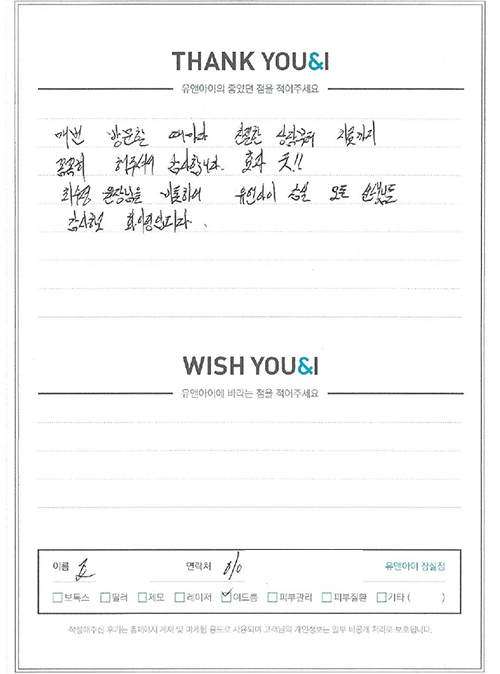 THANK YOU&I
유앤아이의 좋았던 점을 적어주세요
매번 방문할 때마다 친절한 상담부터 치료까지
꼼꼼히 해주셔서 감사합니다. 효과 굿!!
원장님을 비롯하여 유앤아이 잠실 모든 선생님들
감사한 화이팅입니다.
WISH YOU&I
유앤아이에 바라는 점을 적어주세요
이름 조 연락처 010 유앤아이 잠실점
보톡스 필러 제모 레이저 여드름 피부관리 피부질환 기타 ( )
작성해주신 후기는 홈페이지 게재 및 마케팅 용도로 사용되며 고객님의 개인정보는 일부 비공개 처리로 보호됩니다.